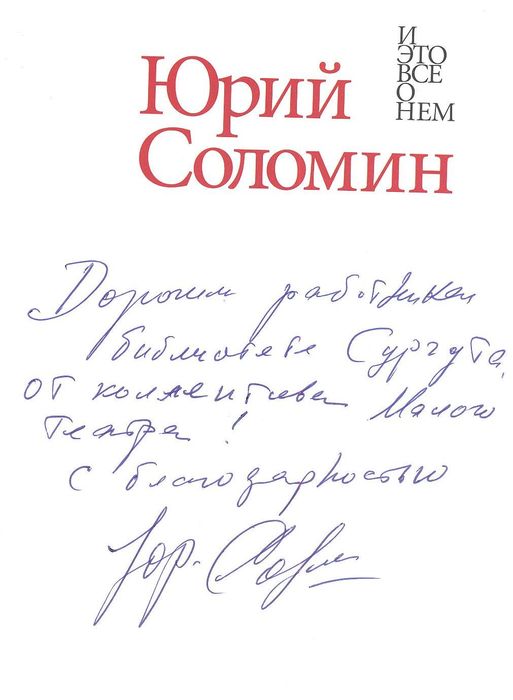 Юрий
Соломин
И
ЭТО
ВСЕ
О
НЕМ
Дорогим работникам
библиотеке Сургута,
от коллектива Малого
театра!
С благодарностью
Юр. Солом